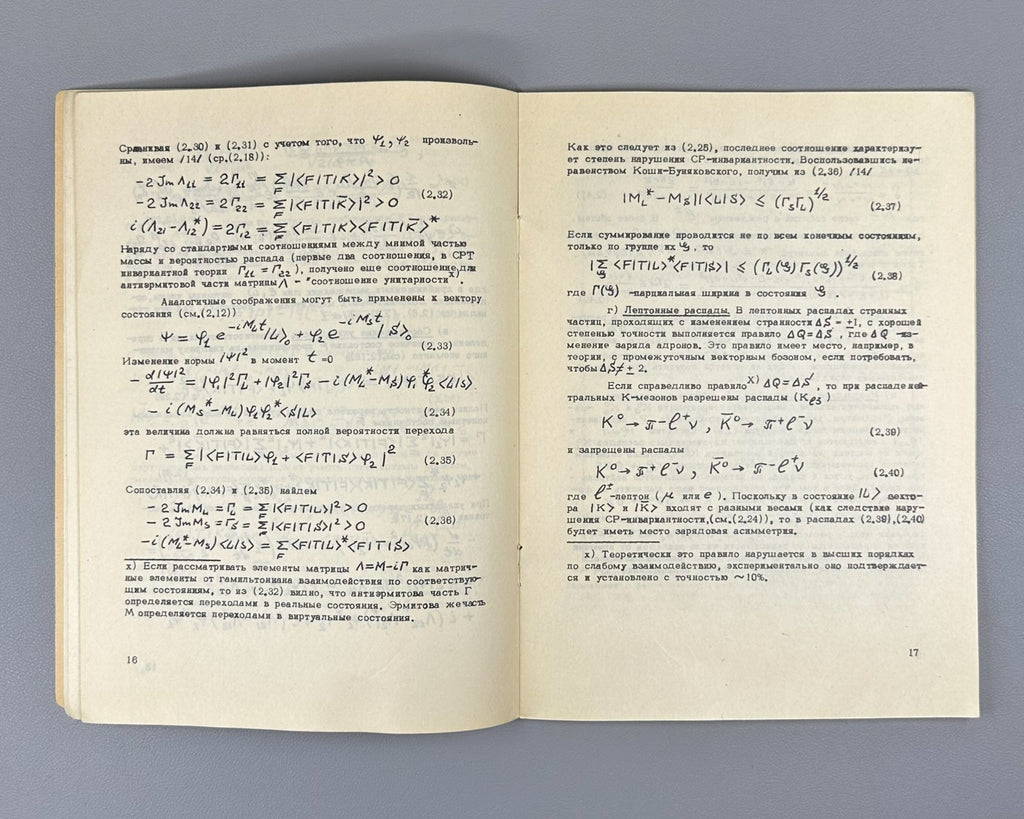 Сравнивая (2.30) и (2.31) с учетом того, что Ψ₁, Ψ₂ произволь-
ны, имеем /14/ (ср.(2.18)):
-2 Jm Λ₁₁ = 2Γ₁₁ = Σ_F |<F|T|K>|² > 0
-2 Jm Λ₂₂ = 2Γ₂₂ = Σ_F |<F|T|K̄>|² > 0 (2.32)
i (Λ₂₁ - Λ₁₂*) = 2Γ₁₂ = Σ_F <F|T|K><F|T|K̄>*
Наряду со стандартными соотношениями между мнимой частью
массы и вероятностью распада (первые два соотношения, в СРТ
инвариантной теории Γ₁₁ = Γ₂₂), получено еще соотношение для
антиэрмитовой части матрицы Λ - "соотношение унитарности" x).
Аналогичные соображения могут быть применены к вектору
состояния (см.(2,12))
Ψ = φ₁ e^{-i M_L t} |L>₀ + φ₂ e^{-i M_S t} |S>₀ (2.33)
Изменение нормы |Ψ|² в момент t =0
- d|Ψ|²/dt = |φ₁|² Γ_L + |φ₂|² Γ_S - i (M_L* - M_S) φ₁* φ₂ <L|S>
- i (M_S* - M_L) φ₁ φ₂* <S|L> (2.34)
эта величина должна равняться полной вероятности перехода
Γ = Σ_F |<F|T|L>φ₁ + <F|T|S>φ₂|² (2.35)
Сопоставляя (2.34) и (2.35) найдем
- 2 Jm M_L = Γ_L = Σ_F |<F|T|L>|² > 0
- 2 Jm M_S = Γ_S = Σ_F |<F|T|S>|² > 0 (2.36)
-i (M_L* - M_S) <L|S> = Σ_F <F|T|L>* <F|T|S>
x) Если рассматривать элементы матрицы Λ = M - iΓ как матрич-
ные элементы от гамильтониана взаимодействия по соответствую-
щим состояниям, то из (2.32) видно, что антиэрмитова часть Γ
определяется переходами в реальные состояния. Эрмитова же часть
M определяется переходами в виртуальные состояния.
16
Как это следует из (2.25), последнее соотношение характеризу-
ет степень нарушения СР-инвариантности. Воспользовавшись не-
равенством Коши-Буняковского, получим из (2.36) /14/
|M_L* - M_S| |<L|S> ≤ (Γ_S Γ_L)^{1/2} (2.37)
Если суммирование проводится не по всем конечным состояниям,
только по группе их 𝒢, то
|Σ_𝒢 <F|T|L>* <F|T|S>| ≤ (Γ_L(𝒢) Γ_S(𝒢))^{1/2} (2.38)
где Γ(𝒢) -парциальная ширина в состояния 𝒢 .
г) Лептонные распады. В лептонных распадах странных
частиц, проходящих с изменением странности ΔS = ±1, с хорошей
степенью точности выполняется правило ΔQ = ΔS , где ΔQ -из-
менение заряда адронов. Это правило имеет место, например, в
теории, с промежуточным векторным бозоном, если потребовать,
чтобы ΔS ≠ ± 2.
Если справедливо правило x) ΔQ = ΔS , то при распаде ней-
тральных К-мезонов разрешены распады (K_ℓ3 )
K⁰ → π⁻ ℓ⁺ ν , K̄⁰ → π⁺ ℓ⁻ ν (2.39)
и запрещены распады
K⁰ → π⁺ ℓ⁻ ν , K̄⁰ → π⁻ ℓ⁺ ν (2.40)
где ℓ± -лептон (μ или e ). Поскольку в состояние |L> векто-
ра |K> и |K̄> входят с разными весами (как следствие нару-
шения СР-инвариантности,(см.(2.24)), то в распадах (2.39),(2.40)
будет иметь место зарядовая асимметрия.
x) Теоретически это правило нарушается в высших порядках
по слабому взаимодействию, экспериментально оно подтверждает-
ся и установлено с точностью ~10%.
17